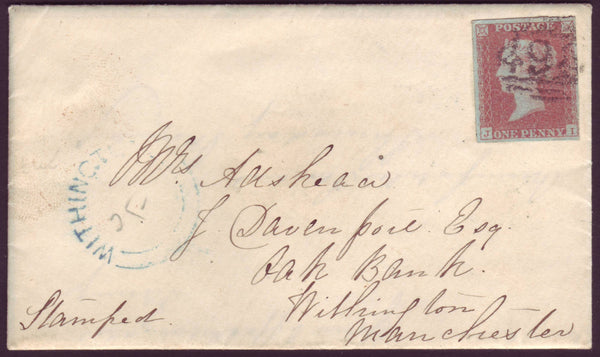 POSTAGE
ONE PENNY
J
WITHING
Mrs Adshead
J Davenport Esq.
Oak Bank.
Withington
Manchester
Stamped.